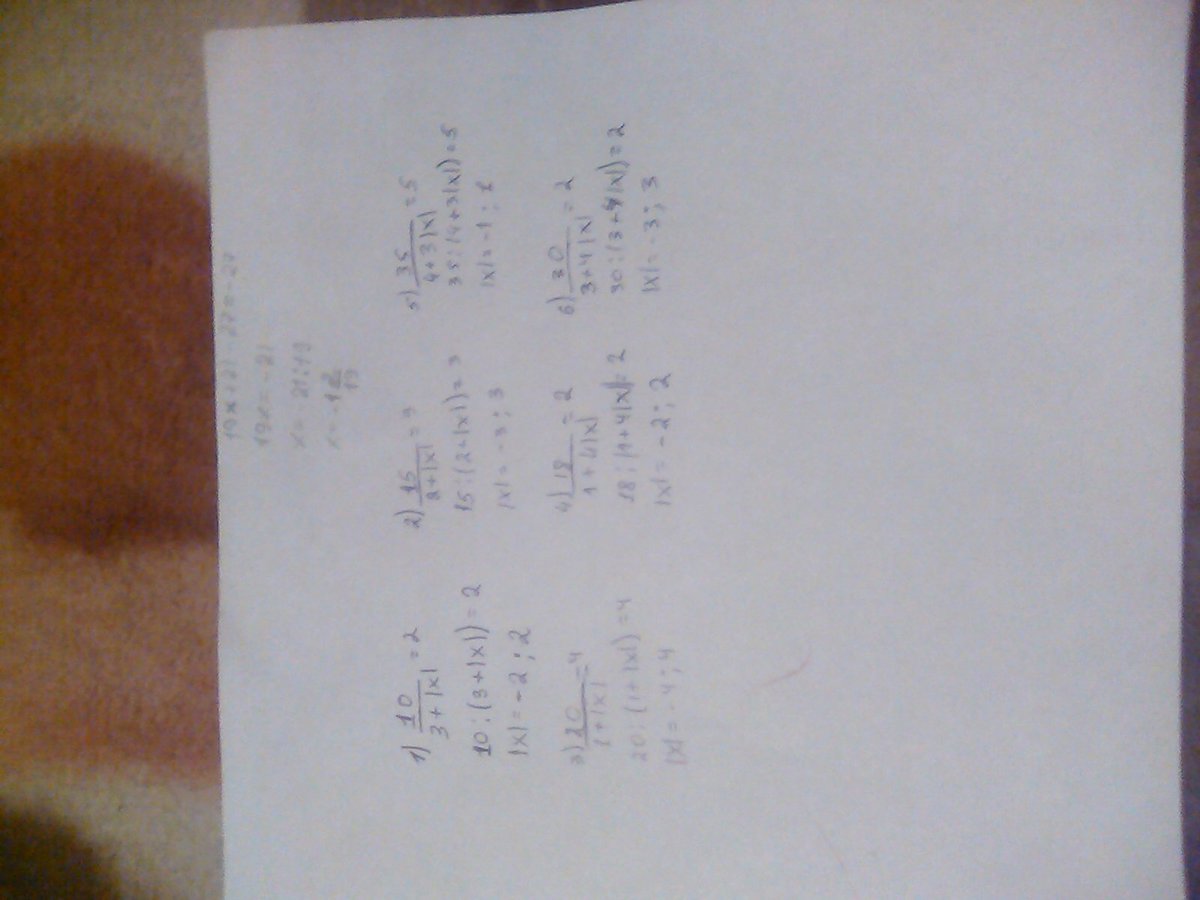 19x = -21
x = -21:19
1) 10/(3+|x|) = 2
10:(3+|x|) = 2
|x| = -2; 2
2) 15/(2+|x|) = 3
15:(2+|x|) = 3
|x| = -3; 3
5) 35/(4+3|x|) = 5
35:(4+3|x|) = 5
|x| = -1; 1
3) 20/(1+|x|) = 4
20:(1+|x|) = 4
|x| = -4; 4
4) 18/(1+4|x|) = 2
18:(1+4|x|) = 2
|x| = -2; 2
6) 30/(3+4|x|) = 2
30:(3+4|x|) = 2
|x| = -3; 3